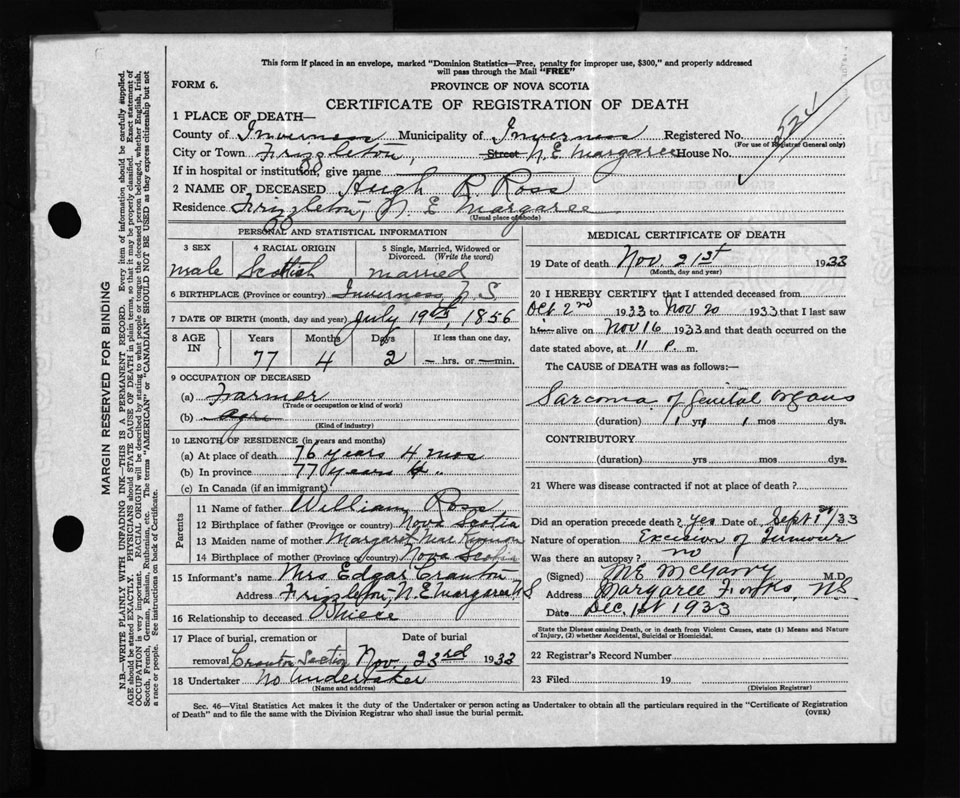 This form if placed in an envelope, marked "Dominion Statistics—Free, penalty for improper use, $300," and properly addressed
will pass through the Mail "FREE"
FORM 6.
PROVINCE OF NOVA SCOTIA
CERTIFICATE OF REGISTRATION OF DEATH
524
1 PLACE OF DEATH—
County of Inverness Municipality of Inverness Registered No.
(For use of Registrar General only)
City or Town Frizzleton, Street N. E. Margaree House No.
If in hospital or institution, give name
2 NAME OF DECEASED Hugh R Ross
Residence Frizzleton, N. E. Margaree
(Usual place of abode)
PERSONAL AND STATISTICAL INFORMATION
3 SEX 4 RACIAL ORIGIN 5 Single, Married, Widowed or Divorced. (Write the word)
male Scottish married
6 BIRTHPLACE (Province or country) Inverness N. S.
7 DATE OF BIRTH (month, day and year) July 19th, 1856
8 AGE IN Years Months Days If less than one day,
77 4 2 — hrs. or — min.
9 OCCUPATION OF DECEASED
(a) Farmer
(Trade or occupation or kind of work)
(b) agri
(Kind of industry)
10 LENGTH OF RESIDENCE (in years and months)
(a) At place of death 76 years 4 mos
(b) In province 77 years 4 "
(c) In Canada (if an immigrant)
Parents
11 Name of father William Ross
12 Birthplace of father (Province or country) Nova Scotia
13 Maiden name of mother Margaret
14 Birthplace of mother (Province or country) Nova Scotia
15 Informant's name Mrs Edgar Cranton,
Address Frizzleton, N. E. Margaree NS
16 Relationship to deceased Niece
17 Place of burial, cremation or Date of burial
removal Cranton Section Nov. 23rd 1933
18 Undertaker No Undertaker
(Name and address)
MEDICAL CERTIFICATE OF DEATH
19 Date of death Nov. 21st 1933
(Month, day and year)
20 I HEREBY CERTIFY that I attended deceased from
Oct 2nd 1933 to Nov 20 1933 that I last saw
him alive on Nov 16 1933 and that death occurred on
date stated above, at 11 p. m.
The CAUSE of DEATH was as follows:—
Sarcoma of Genital Organs
(duration) 1 yrs 1 mos dys.
CONTRIBUTORY
(duration) yrs mos dys.
21 Where was disease contracted if not at place of death?
Did an operation precede death? yes Date of Sept /33
Nature of operation Excision of Tumour
Was there an autopsy? no
(Signed) M.D.
Address Margaree Forks, NS
Date Dec. 1st 1933
State the Disease causing Death, or in death from Violent Causes, state (1) Means and Nature
of Injury, (2) whether Accidental, Suicidal or Homicidal.
22 Registrar's Record Number
23 Filed 19
(Division Registrar)
Sec. 46—Vital Statistics Act makes it the duty of the Undertaker or person acting as Undertaker to obtain all the particulars required in the "Certificate of Registration
of Death" and to file the same with the Division Registrar who shall issue the burial permit.
(OVER)
MARGIN RESERVED FOR BINDING
N.B.—WRITE PLAINLY WITH UNFADING INK—THIS IS A PERMANENT RECORD. Every item of information should be carefully supplied.
AGE should be stated EXACTLY. PHYSICIANS should STATE CAUSE OF DEATH in plain terms, so that it may be properly classified. Exact statement of
OCCUPATION is very important. RACIAL ORIGIN will be described by stating to what people or tongue the deceased person belonged, whether English, Irish,
Scotch, French, German, Russian, Ruthenian, etc. The terms "AMERICAN" or "CANADIAN" SHOULD NOT BE USED as they express citizenship but not
a race or people. See instructions on back of Certificate.